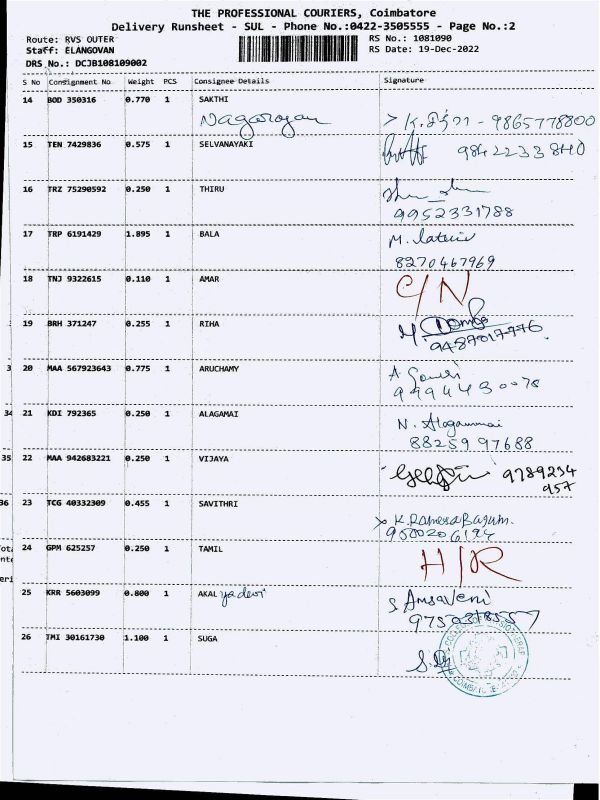 THE PROFESSIONAL COURIERS, Coimbatore
Delivery Runsheet - SUL - Phone No.:0422-3505555 - Page No.:2
Route: RVS OUTER
RS No.: 1081090
Staff: ELANGOVAN
RS Date: 19-Dec-2022
DRS No.: DCJB108109002
S No Consignment No Weight PCS Consignee Details Signature
14 BOD 350316 0.770 1 SAKTHI
Nagarajan
- 9865778800
15 TEN 7429836 0.575 1 SELVANAYAKI
9842233840
16 TRZ 75290592 0.250 1 THIRU
9952331788
17 TRP 6191429 1.895 1 BALA
M.
8270467969
18 TNJ 9322615 0.110 1 AMAR C/N
19 BRH 371247 0.255 1 RIHA
9487017776
20 MAA 567923643 0.775 1 ARUCHAMY
A. Gowri
9994430078
21 KDI 792365 0.250 1 ALAGAMAI
N. Alagammai
88259 97688
22 MAA 942683221 0.250 1 VIJAYA
9789234
957
23 TCG 40332309 0.455 1 SAVITHRI
K.
24 GPM 625257 0.250 1 TAMIL H/R
25 KRR 5603099 0.800 1 AKAL yadevi
S. Amsaveni
26 TMI 30161730 1.100 1 SUGA